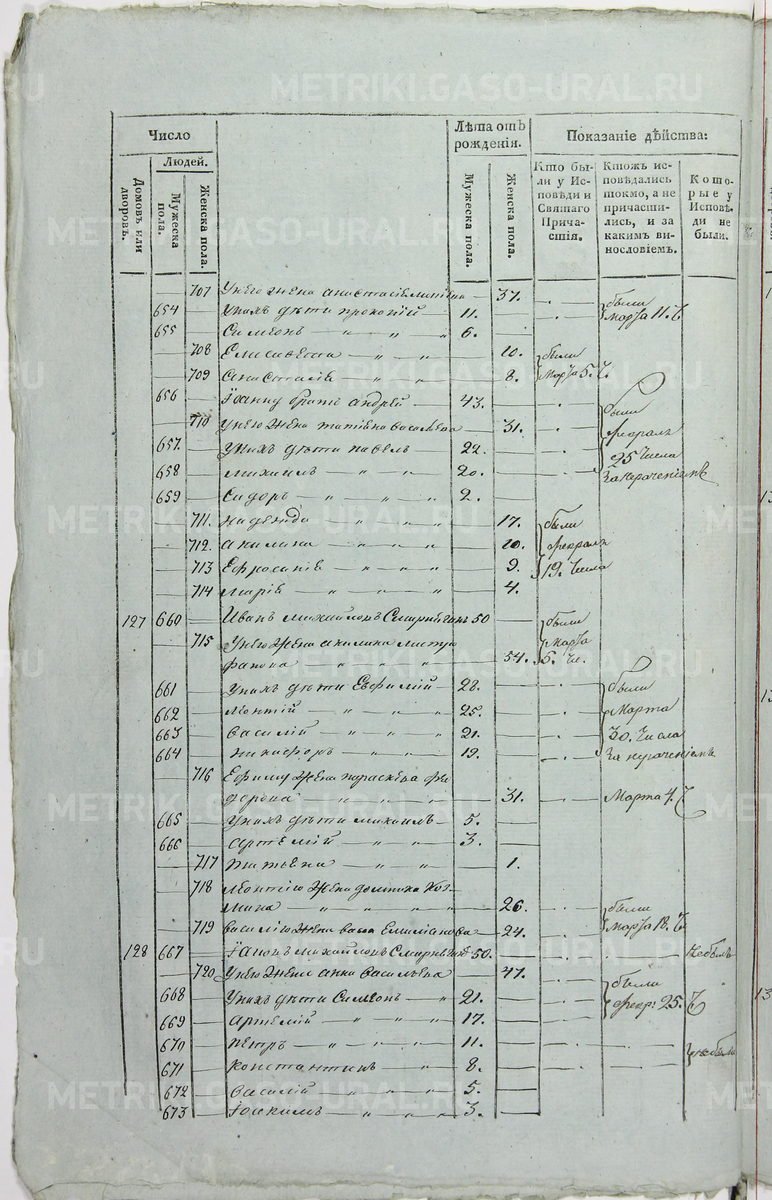 METRIKI.GASO-URAL.RU
Число
Лѣта отъ рожденія.
Показаніе дѣйства:
Людей.
Домовъ или дворовъ.
Мужеска пола.
Женска пола.
Мужеска пола.
Женска пола.
Кто были у Исповѣди и Святаго Причастія.
Ктожъ исповѣдались токмо, а не причастились, и за какимъ винословіемъ.
Которые у Исповѣди не были.
707 У него жена анастасія 37.
654 У нихъ дѣти прокопій 11. были марта 11. Ч
655 Симеонъ „ „ „ 6.
708 Елисавета „ „ 10. были
709 Анастасія „ „ 8. Марта 5. Ч.
656 Іоанну братъ андрей 43.
710 У него жена татіана васильева 31. были февраля
657. У нихъ дѣти павелъ 22. 25 Числа
658 михаилъ „ „ 20.
659 Сидоръ „ „ „ 2.
711. надежда „ „ „ 17. были
712. акилина „ „ „ 10. февраля
713 Ефросинія „ „ „ 9. 19. Числа
714 марія „ „ „ 4.
127 660 Иванъ михайловъ 50 были
715 У него жена акилина митро марта
фанова „ „ „ 54. 5. Чи.
661 У нихъ дѣти Евфимій 28. были
662 Леонтій „ „ „ 25. Марта
663 василій „ „ „ 21. 30. Числа
664 никифоръ „ „ 19.
716 Ефиму жена параскева фе
дорова „ „ „ 31. Марта 4. Ч
665 У нихъ дѣти михаилъ 5.
666 артемій „ „ 3.
717 татьяна „ „ 1.
718 леонтію жена домника Коз
мина „ „ „ 26. были
719 василію жена васса Емиліанова 24. марта 18. Ч.
128 667 михайловъ 50. не былъ
720 У него жена анна васильева 47. были
668 У нихъ дѣти Симеонъ „ 21. февр: 25. Ч
669 артемій „ „ „ 17.
670 петръ „ „ „ 11. не были
671 константинъ „ 8.
672 василій „ „ „ 5.
673 Іоакимъ „ „ „ 3.